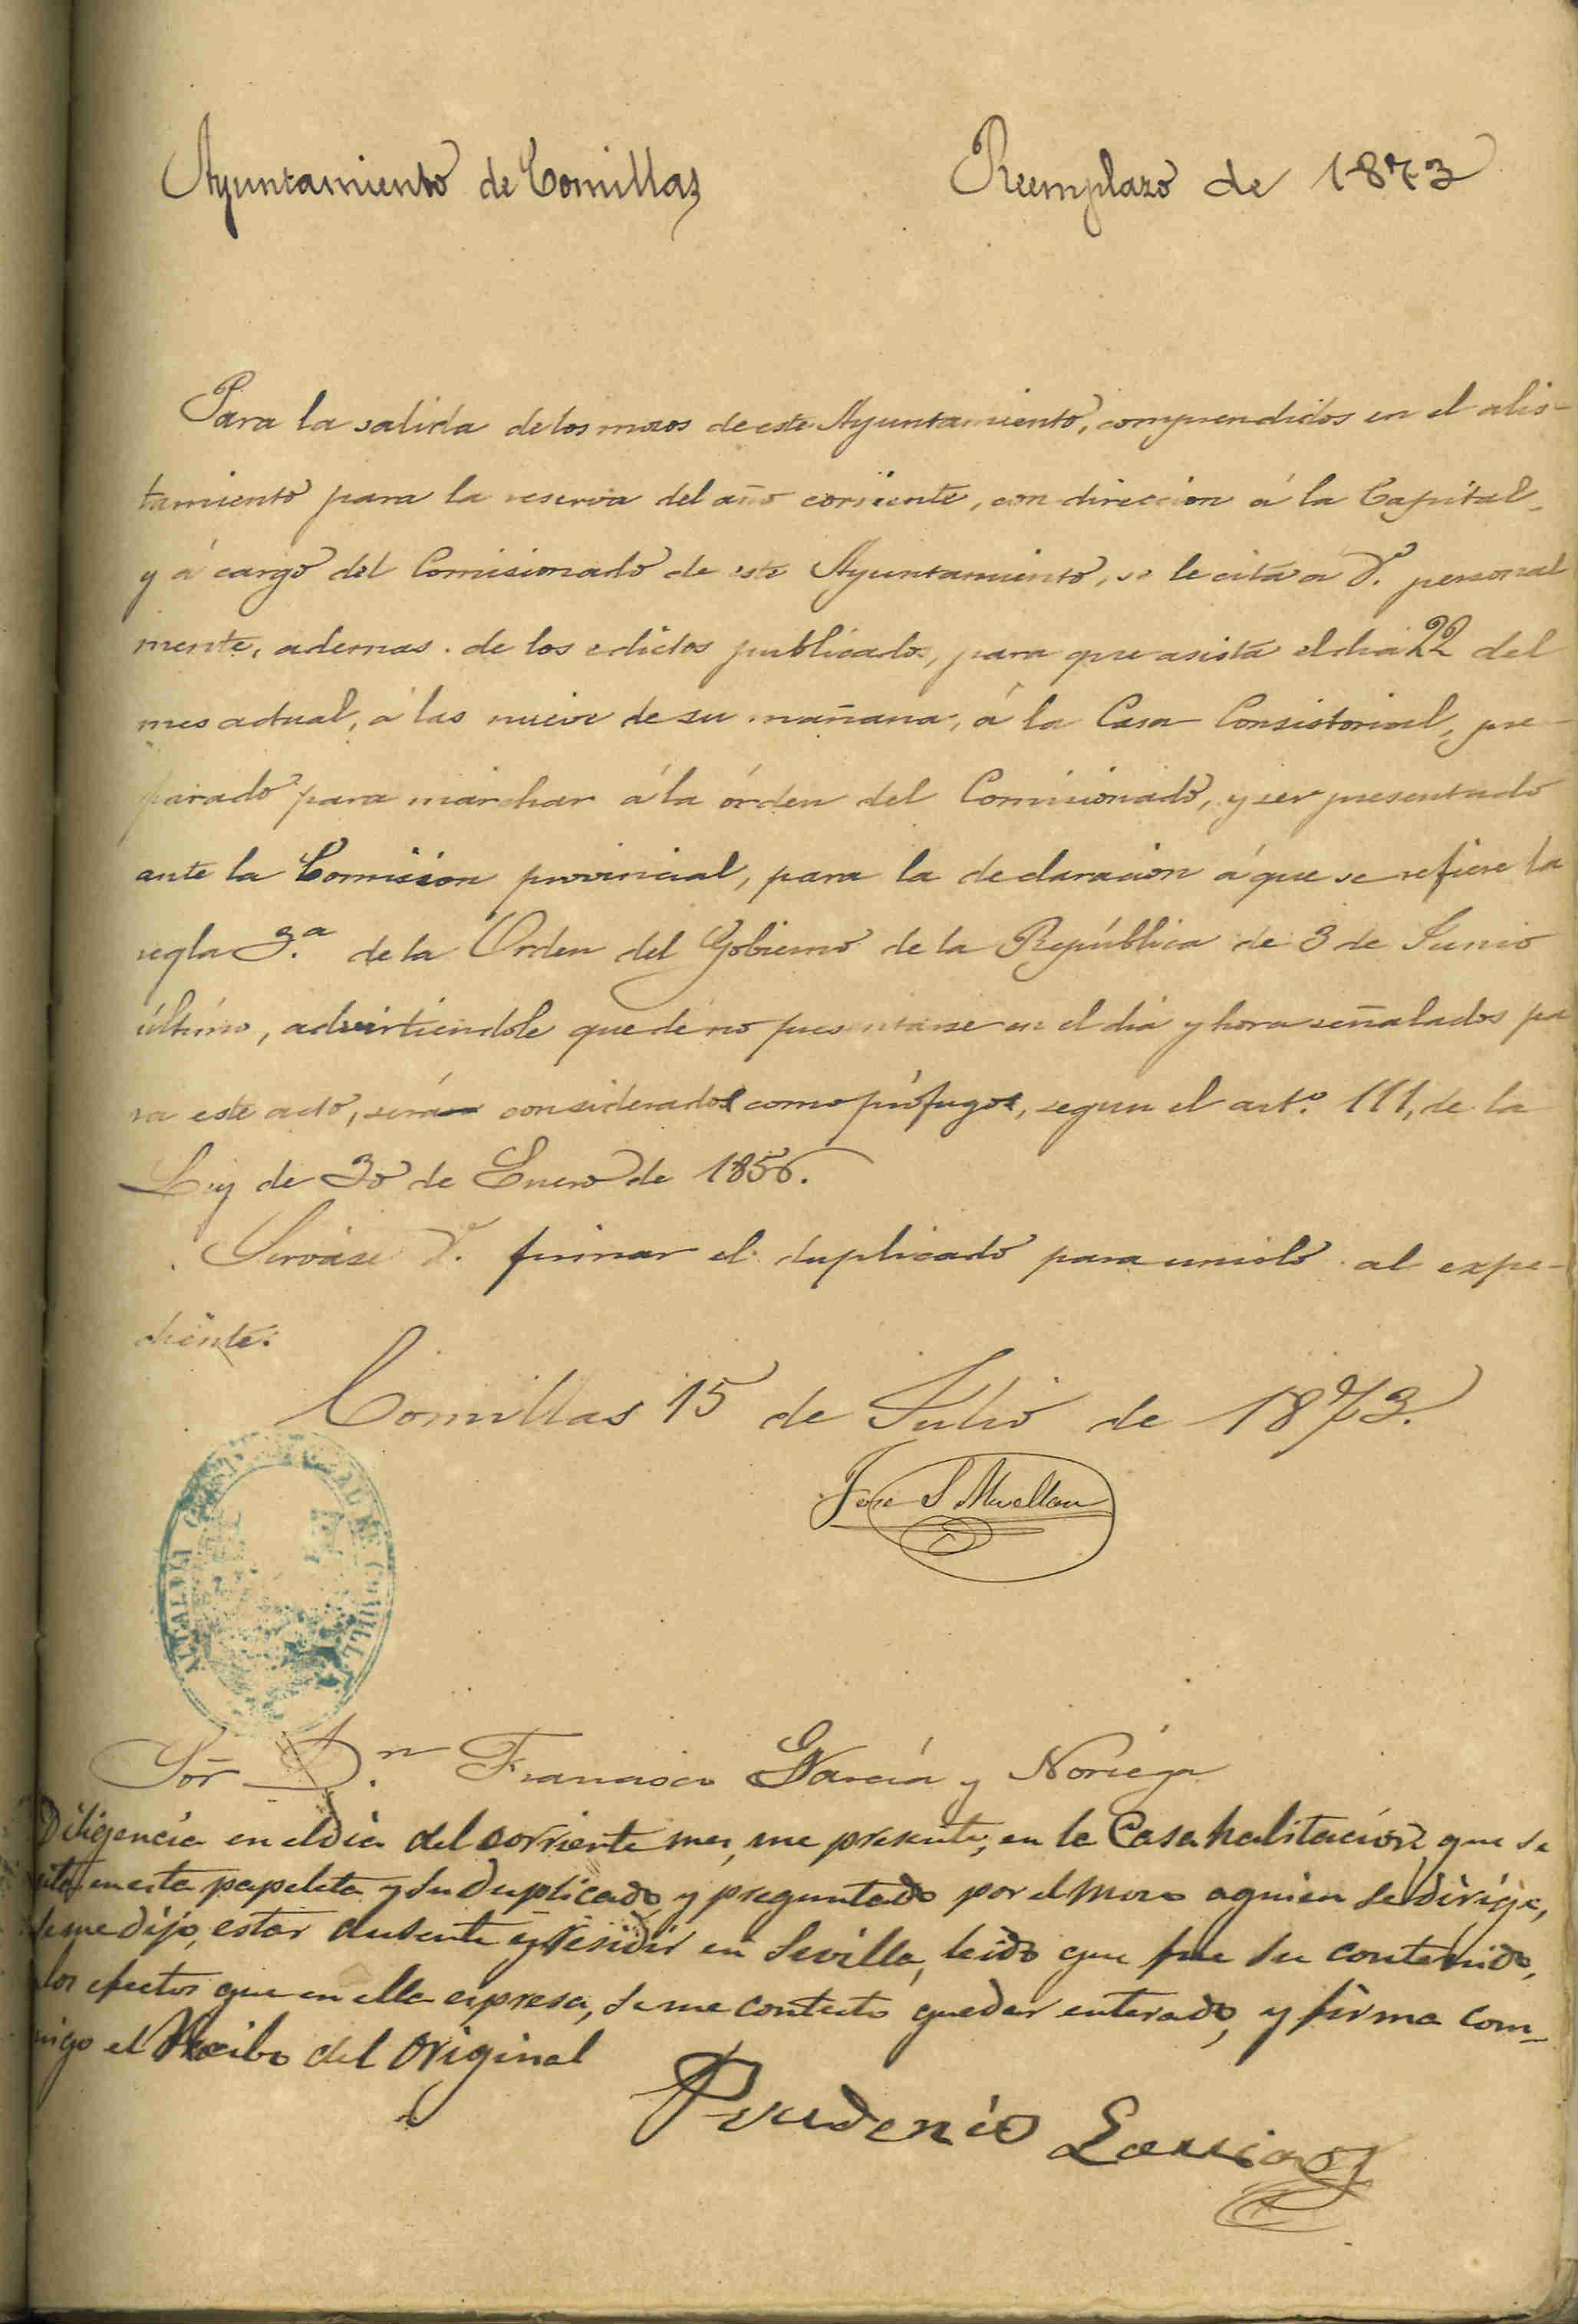 Ayuntamiento de Comillas
Reemplazo de 1873
Para la salida de los mozos de este Ayuntamiento, comprendidos en el alis-
tamiento para la reserva del año corriente, con direccion á la Capital,
y á cargo del Comisionado de este Ayuntamiento, se le cita á V. personal
mente, ademas de los edictos publicados, para que asista el dia 22 del
mes actual, á las nueve de su mañana, á la Casa Consistorial, pre-
parado para marchar á la órden del Comisionado, y ser presentado
ante la Comision provincial, para la declaracion á que se refiere la
regla 3.ª de la Orden del Gobierno de la República de 3 de Junio
último, advirtiendole que de no presentarse en el dia y hora señalados pa
ra este acto, será considerado como prófugo, segun el art.º 111, de la
Ley de 30 de Enero de 1856.
Sirvase V. firmar el duplicado para unirlo al expe-
diente.
Comillas 15 de Julio de 1873.
Jose S
ALCALDIA CONSTITUCIONAL DE COMILLAS
Sor D.n Francisco García y Noriega
Diligencia en el dia del corriente mes, me presente, en la Casa habitacion que se
cita en esta papeleta y su Duplicado y preguntado por el Mozo aquien se dirige,
se me dijo, estar ausente y residir en Sevilla, leido que fue su contenido,
los efectos que en ella espresa, se me contesto quedar enterado, y firma con-
migo el Recibo del Original
Prudenio